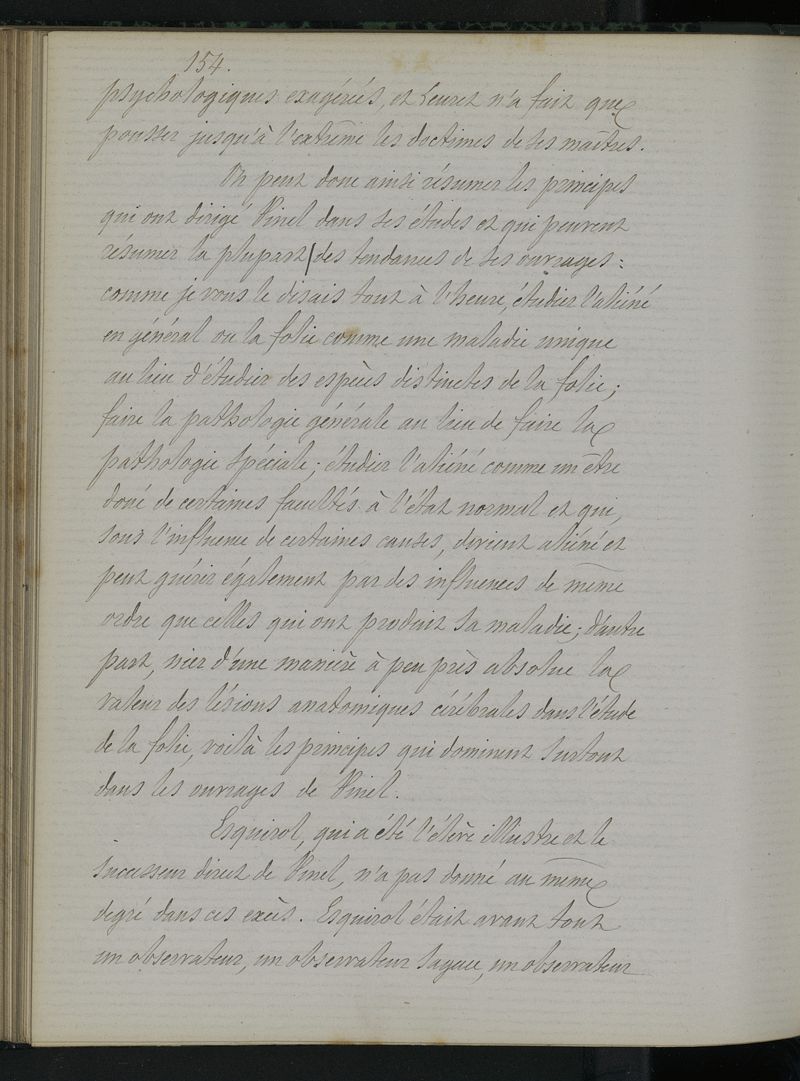 154.
psychologiques exagérées, et Leuret n'a fait que
pousser jusqu'à l'extrême les doctrines de ses maîtres.
On peut donc ainsi résumer les principes
qui ont dirigé Pinel dans ses études et qui peuvent
résumer la plupart des tendances de ses ouvrages :
comme je vous le disais tout à l'heure, étudier l'aliéné
en général ou la folie comme une maladie unique
au lieu d'étudier des espèces distinctes de la folie ;
faire la pathologie générale au lieu de faire la
pathologie spéciale ; étudier l'aliéné comme un être
doué de certaines facultés à l'état normal et qui,
sous l'influence de certaines causes, devient aliéné et
peut guérir également par des influences de même
ordre que celles qui ont produit sa maladie ; d'autre
part, nier d'une manière à peu près absolue la
valeur des lésions anatomiques cérébrales dans l'étude
de la folie, voilà les principes qui dominent surtout
dans les ouvrages de Pinel.
Esquirol, qui a été l'élève illustre et le
successeur direct de Pinel, n'a pas donné au même
degré dans ces excès. Esquirol était avant tout
un observateur, un observateur sagace, un observateur